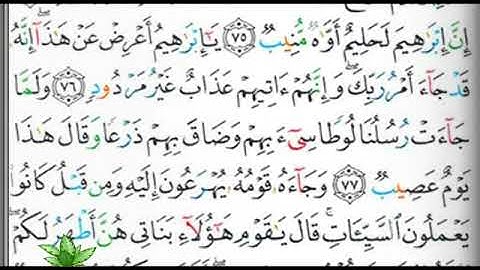 إِنَّ إِبْرَٰهِيمَ لَحَلِيمٌ أَوَّٰهٌ مُّنِيبٌ ٧٥ يَـٰٓإِبْرَٰهِيمُ أَعْرِضْ عَنْ هَـٰذَآ إِنَّهُۥ
قَدْ جَآءَ أَمْرُ رَبِّكَ وَإِنَّهُمْ ءَاتِيهِمْ عَذَابٌ غَيْرُ مَرْدُودٍ ٧٦ وَلَمَّا
جَآءَتْ رُسُلُنَا لُوطًا سِىٓءَ بِهِمْ وَضَاقَ بِهِمْ ذَرْعًا وَقَالَ هَـٰذَا
يَوْمٌ عَصِيبٌ ٧٧ وَجَآءَهُۥ قَوْمُهُۥ يُهْرَعُونَ إِلَيْهِ وَمِن قَبْلُ كَانُوا۟
يَعْمَلُونَ السَّيِّـَٔاتِ ۚ قَالَ يَـٰقَوْمِ هَـٰٓؤُلَآءِ بَنَاتِى هُنَّ أَطْهَرُ لَكُمْ